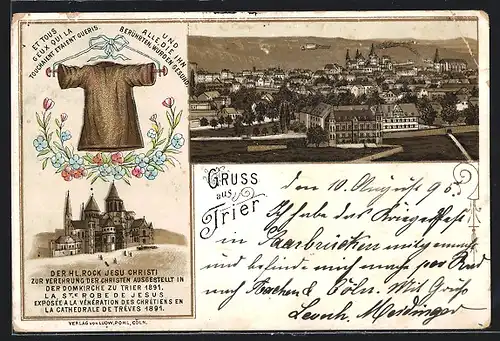 ET TOUS
CEUX QUI LA
TOUCHAIENT ETAIENT GUERIS
UND
ALLE DIE IHN
BERÜHRTEN, WURDEN GESUND
DER HL. ROCK JESU CHRISTI
ZUR VEREHRUNG DER CHRISTEN AUSGESTELLT IN
DER DOMKIRCHE ZU TRIER 1891.
LA STE ROBE DE JESUS
EXPOSÉE A LA VÉNÉRATION DES CHRÉTIENS EN
LA CATHEDRALE DE TRÈVES 1891.
VERLAG VON LUDW. POHL, CÖLN.
GRUSS
aus
Trier
den 10. August 95.
Ich habe das Kriegerfest
in Saarbrücken mitgemacht
und befinde mich per Rad
nach Aachen & Cöln. Mit Gruß
Meidinger